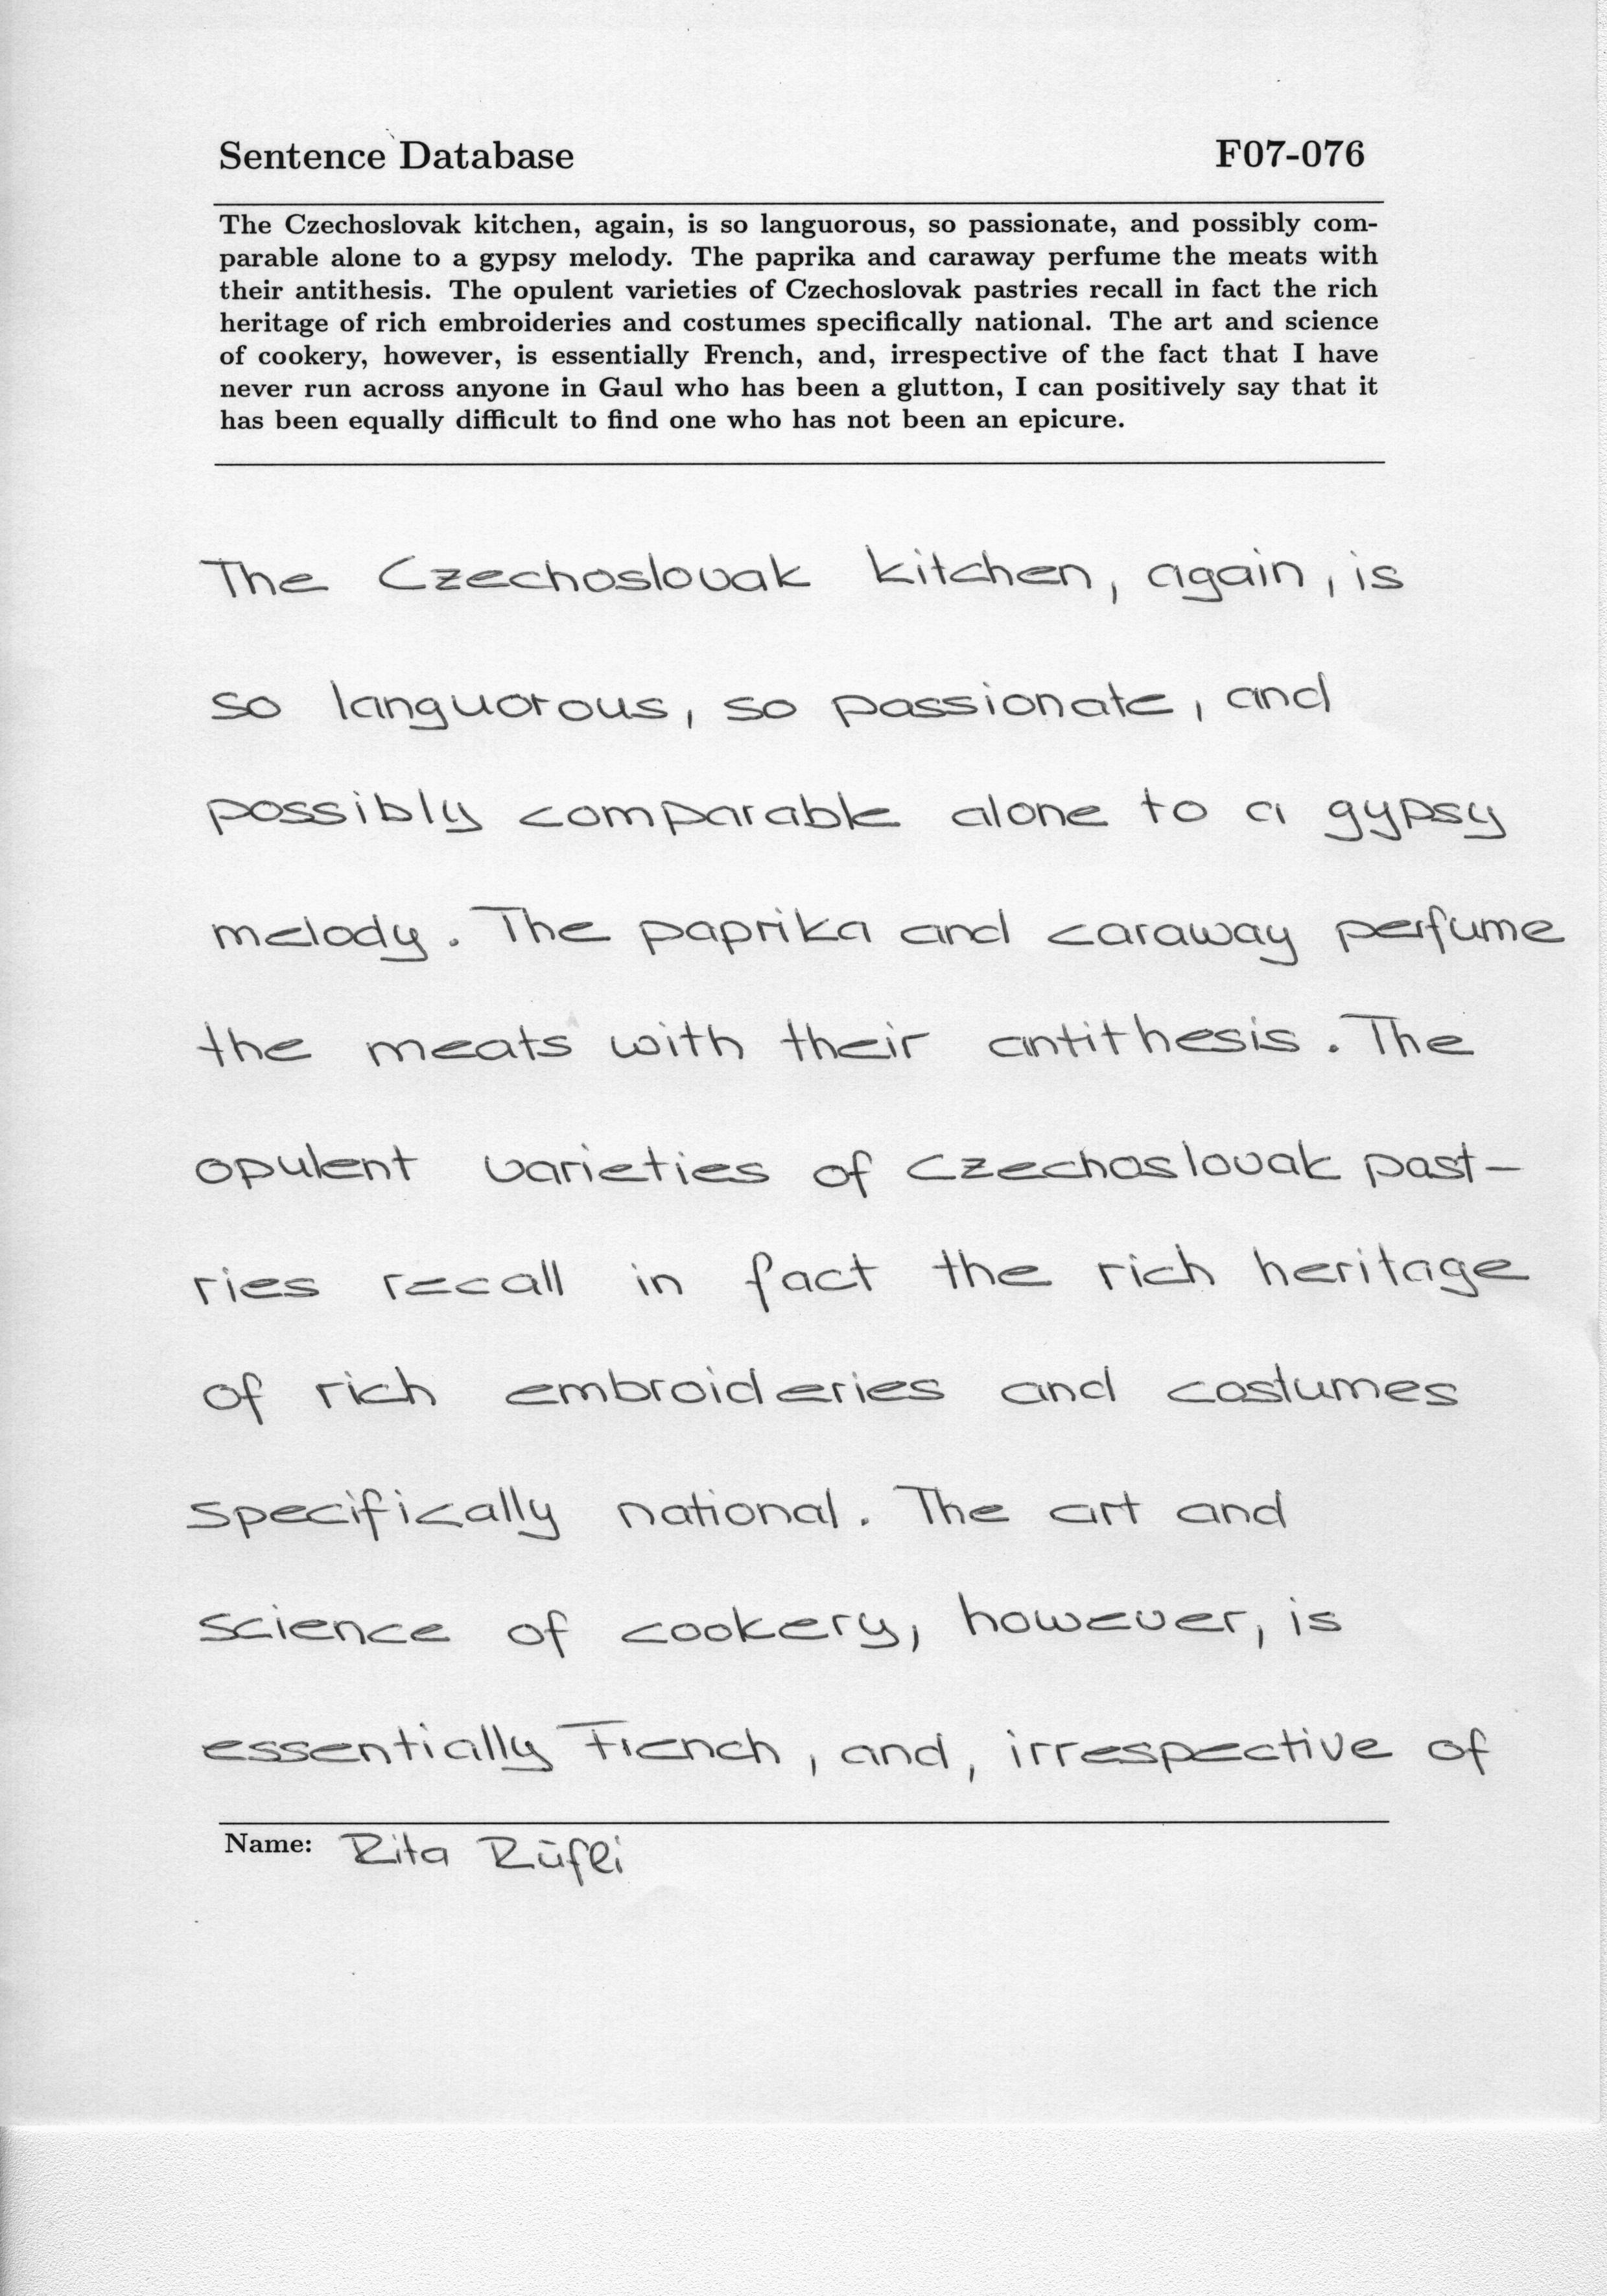 Sentence Database F07-076
The Czechoslovak kitchen, again, is so languorous, so passionate, and possibly com-
parable alone to a gypsy melody. The paprika and caraway perfume the meats with
their antithesis. The opulent varieties of Czechoslovak pastries recall in fact the rich
heritage of rich embroideries and costumes specifically national. The art and science
of cookery, however, is essentially French, and, irrespective of the fact that I have
never run across anyone in Gaul who has been a glutton, I can positively say that it
has been equally difficult to find one who has not been an epicure.
The Czechoslovak kitchen, again, is
so languorous, so passionate, and
possibly comparable alone to a gypsy
melody. The paprika and caraway perfume
the meats with their antithesis. The
opulent varieties of Czechoslovak past-
ries recall in fact the rich heritage
of rich embroideries and costumes
specifically national. The art and
science of cookery, however, is
essentially French, and, irrespective of
Name: Rita Rüfli